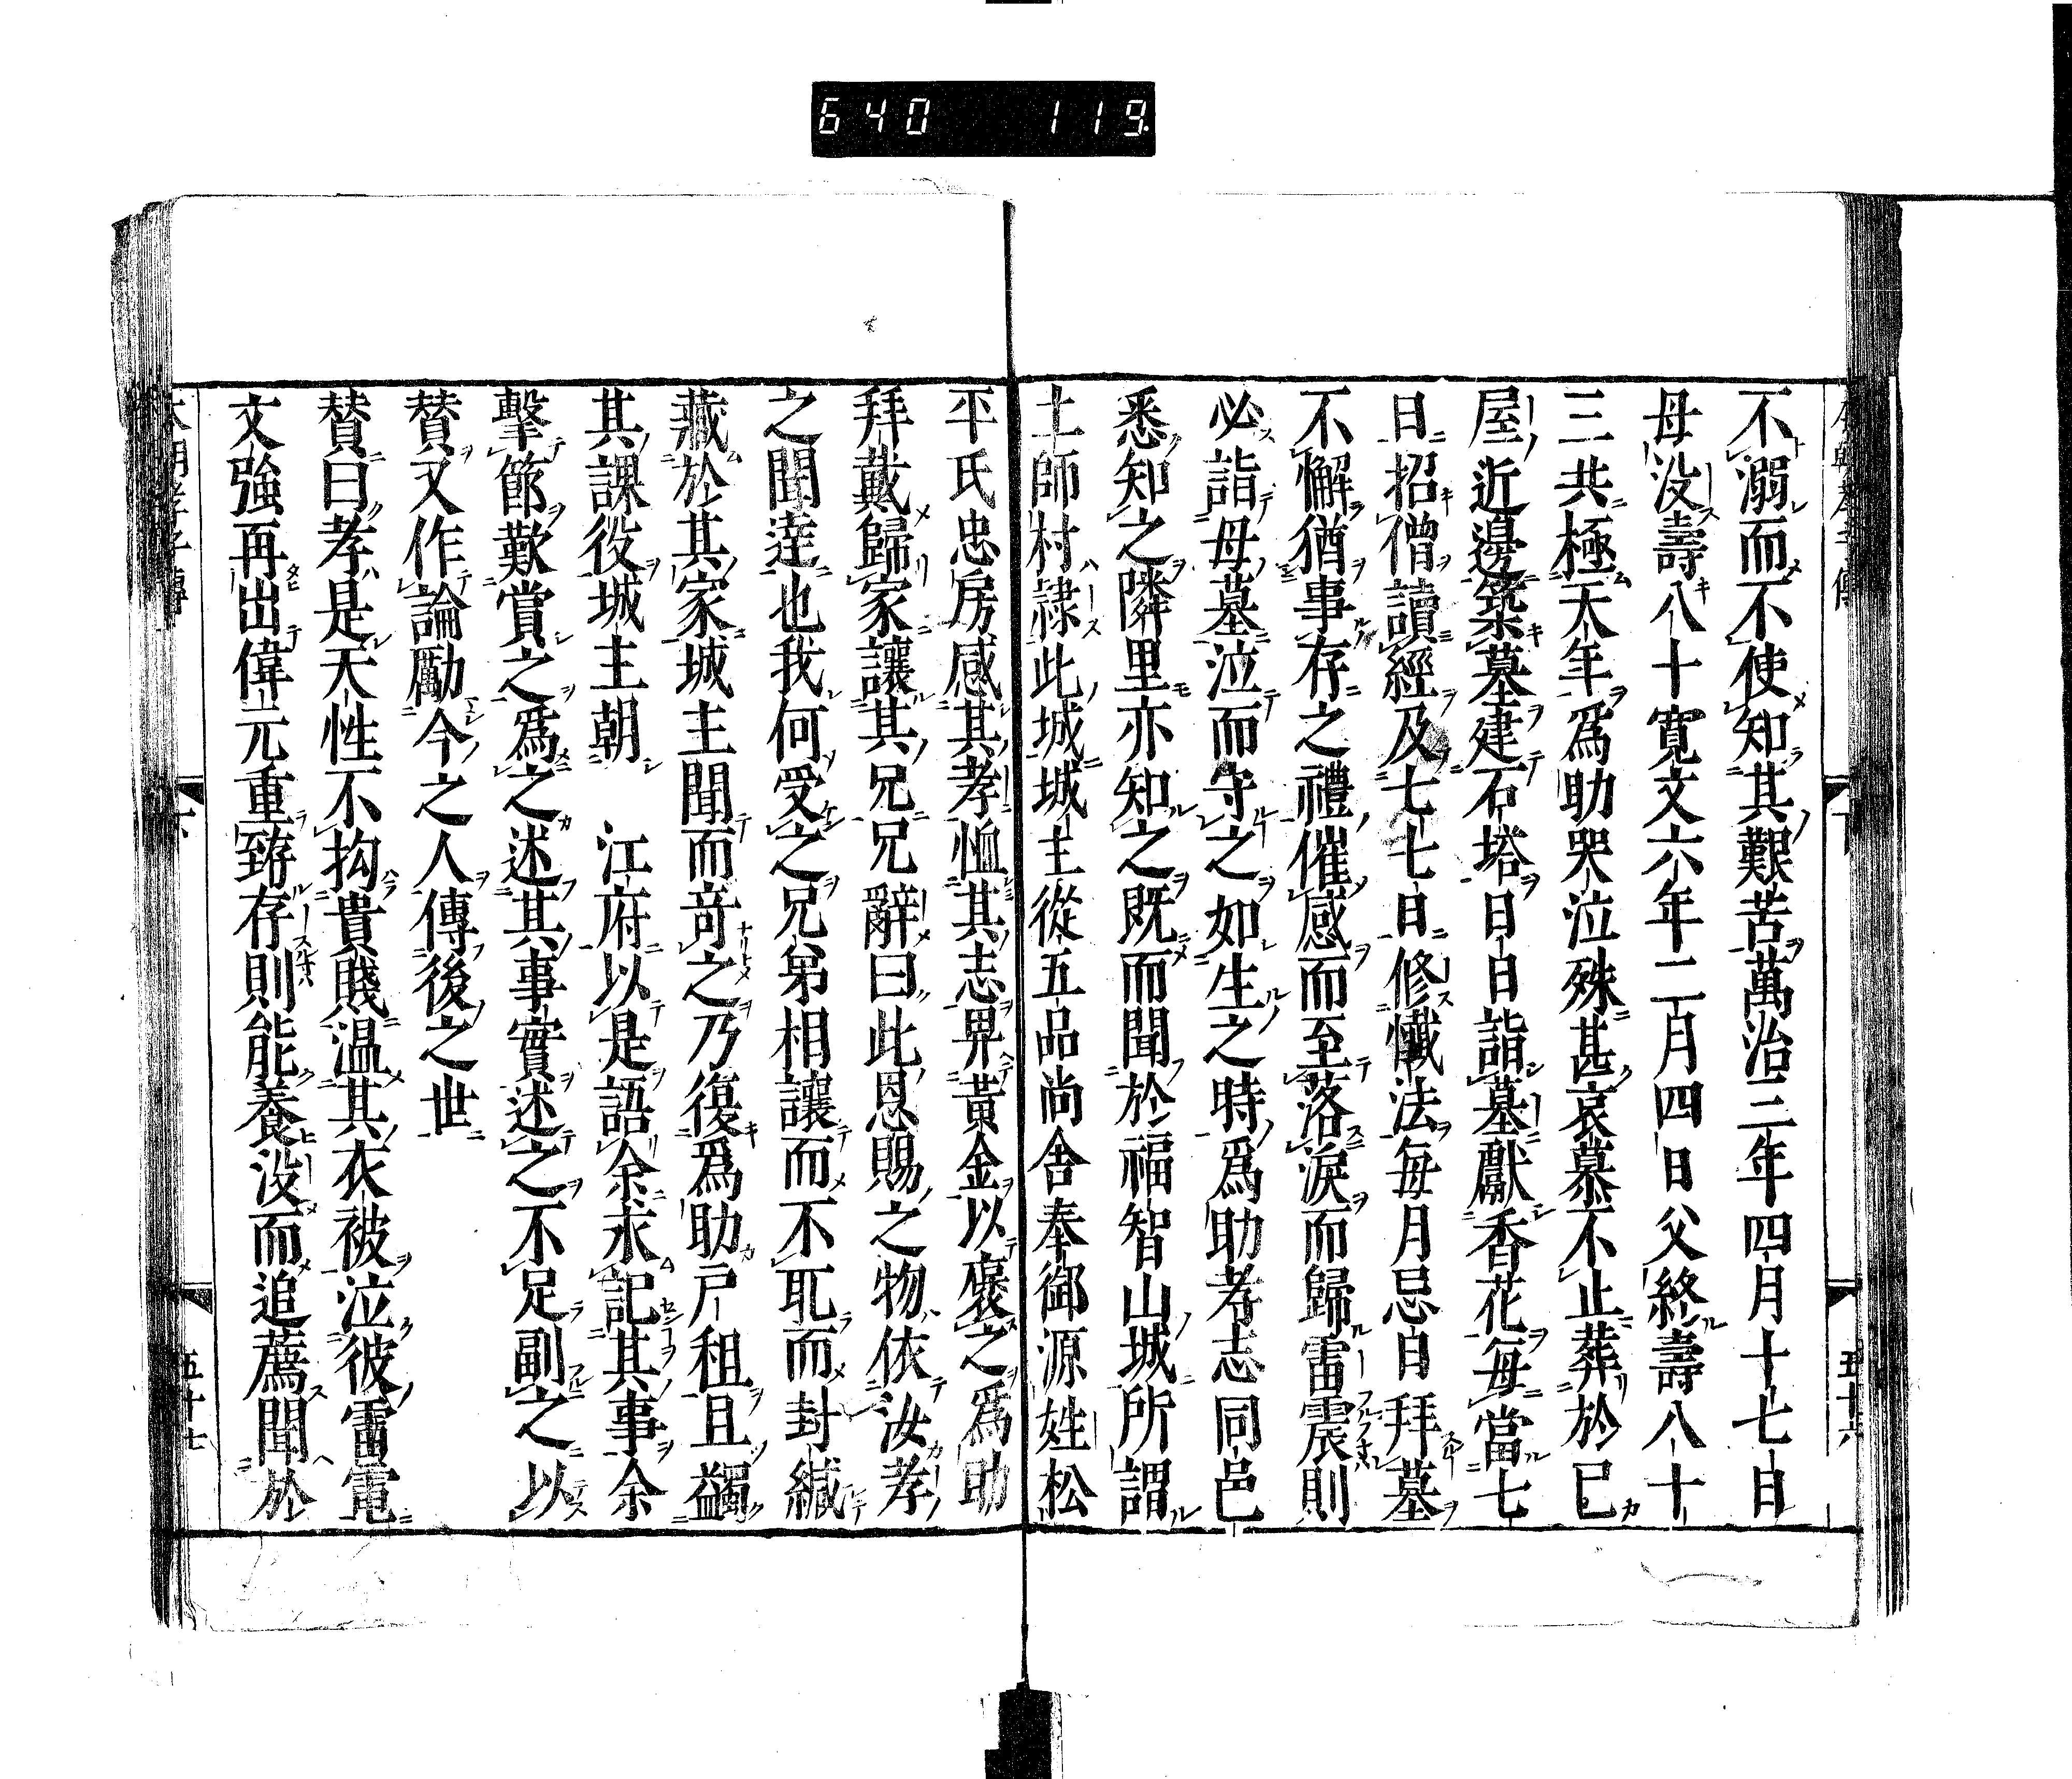 640 119.
不溺而不使知其艱苦萬治三年四月十七日
母没壽八十寛文六年二月四日父終壽八十
三共極天年爲助哭泣殊甚哀慕不止葬於已
屋近邊築墓建石塔日日詣墓獻香花每當七
日招僧讀經及七七日修懺法每月忌日拜墓
不懈猶事存之禮催感而至落淚而歸雷震則
必詣母墓泣而守之如生之時爲助孝志同邑
悉知之隣里亦知之既而聞於福智山城所謂
土師村隷此城城主從五品尚舍奉御源姓松
平氏忠房感其孝恤其志畀黃金以褒之爲助
拜戴歸家讓其兄兄辭曰此恩賜之物依汝孝
之聞達也我何受之兄弟相讓而不耻而封緘
藏於其家城主聞而奇之乃復爲助戸租且蠲
其課役城主朝 江府以是語余求記其事余
擊節歎賞之爲之述其事實述之不足副之以
賛又作論勵今之人傳後之世
賛曰孝是天性不拘貴賤温其衣被泣彼雷電
文強再出偉元重臻存則能養没而追薦聞於
五十六
五十七